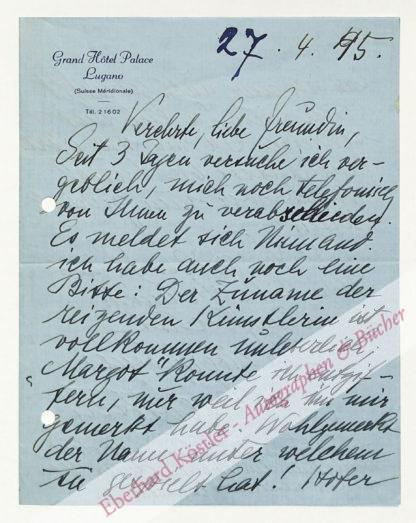 Grand Hôtel Palace
Lugano
(Suisse Méridionale)
Tél. 2 16 02
27. 4. 45.
Verehrte, liebe Freundin,
Seit 3 Tagen versuche ich ver-
geblich, mich noch telefonisch
von Ihnen zu verabschieden.
Es meldet sich Niemand.
Ich habe auch noch eine
Bitte: Der Zuname der
reizenden Künstlerin ist
vollkommen unleserlich,
"Margot" konnte ich entzif-
fern, nur weil ich ihn mir
gemerkt habe. Wohlgemerkt
der Name unter welchem
sie gespielt hat! Hofer
Eberhard Köstler · Autographen & Bücher